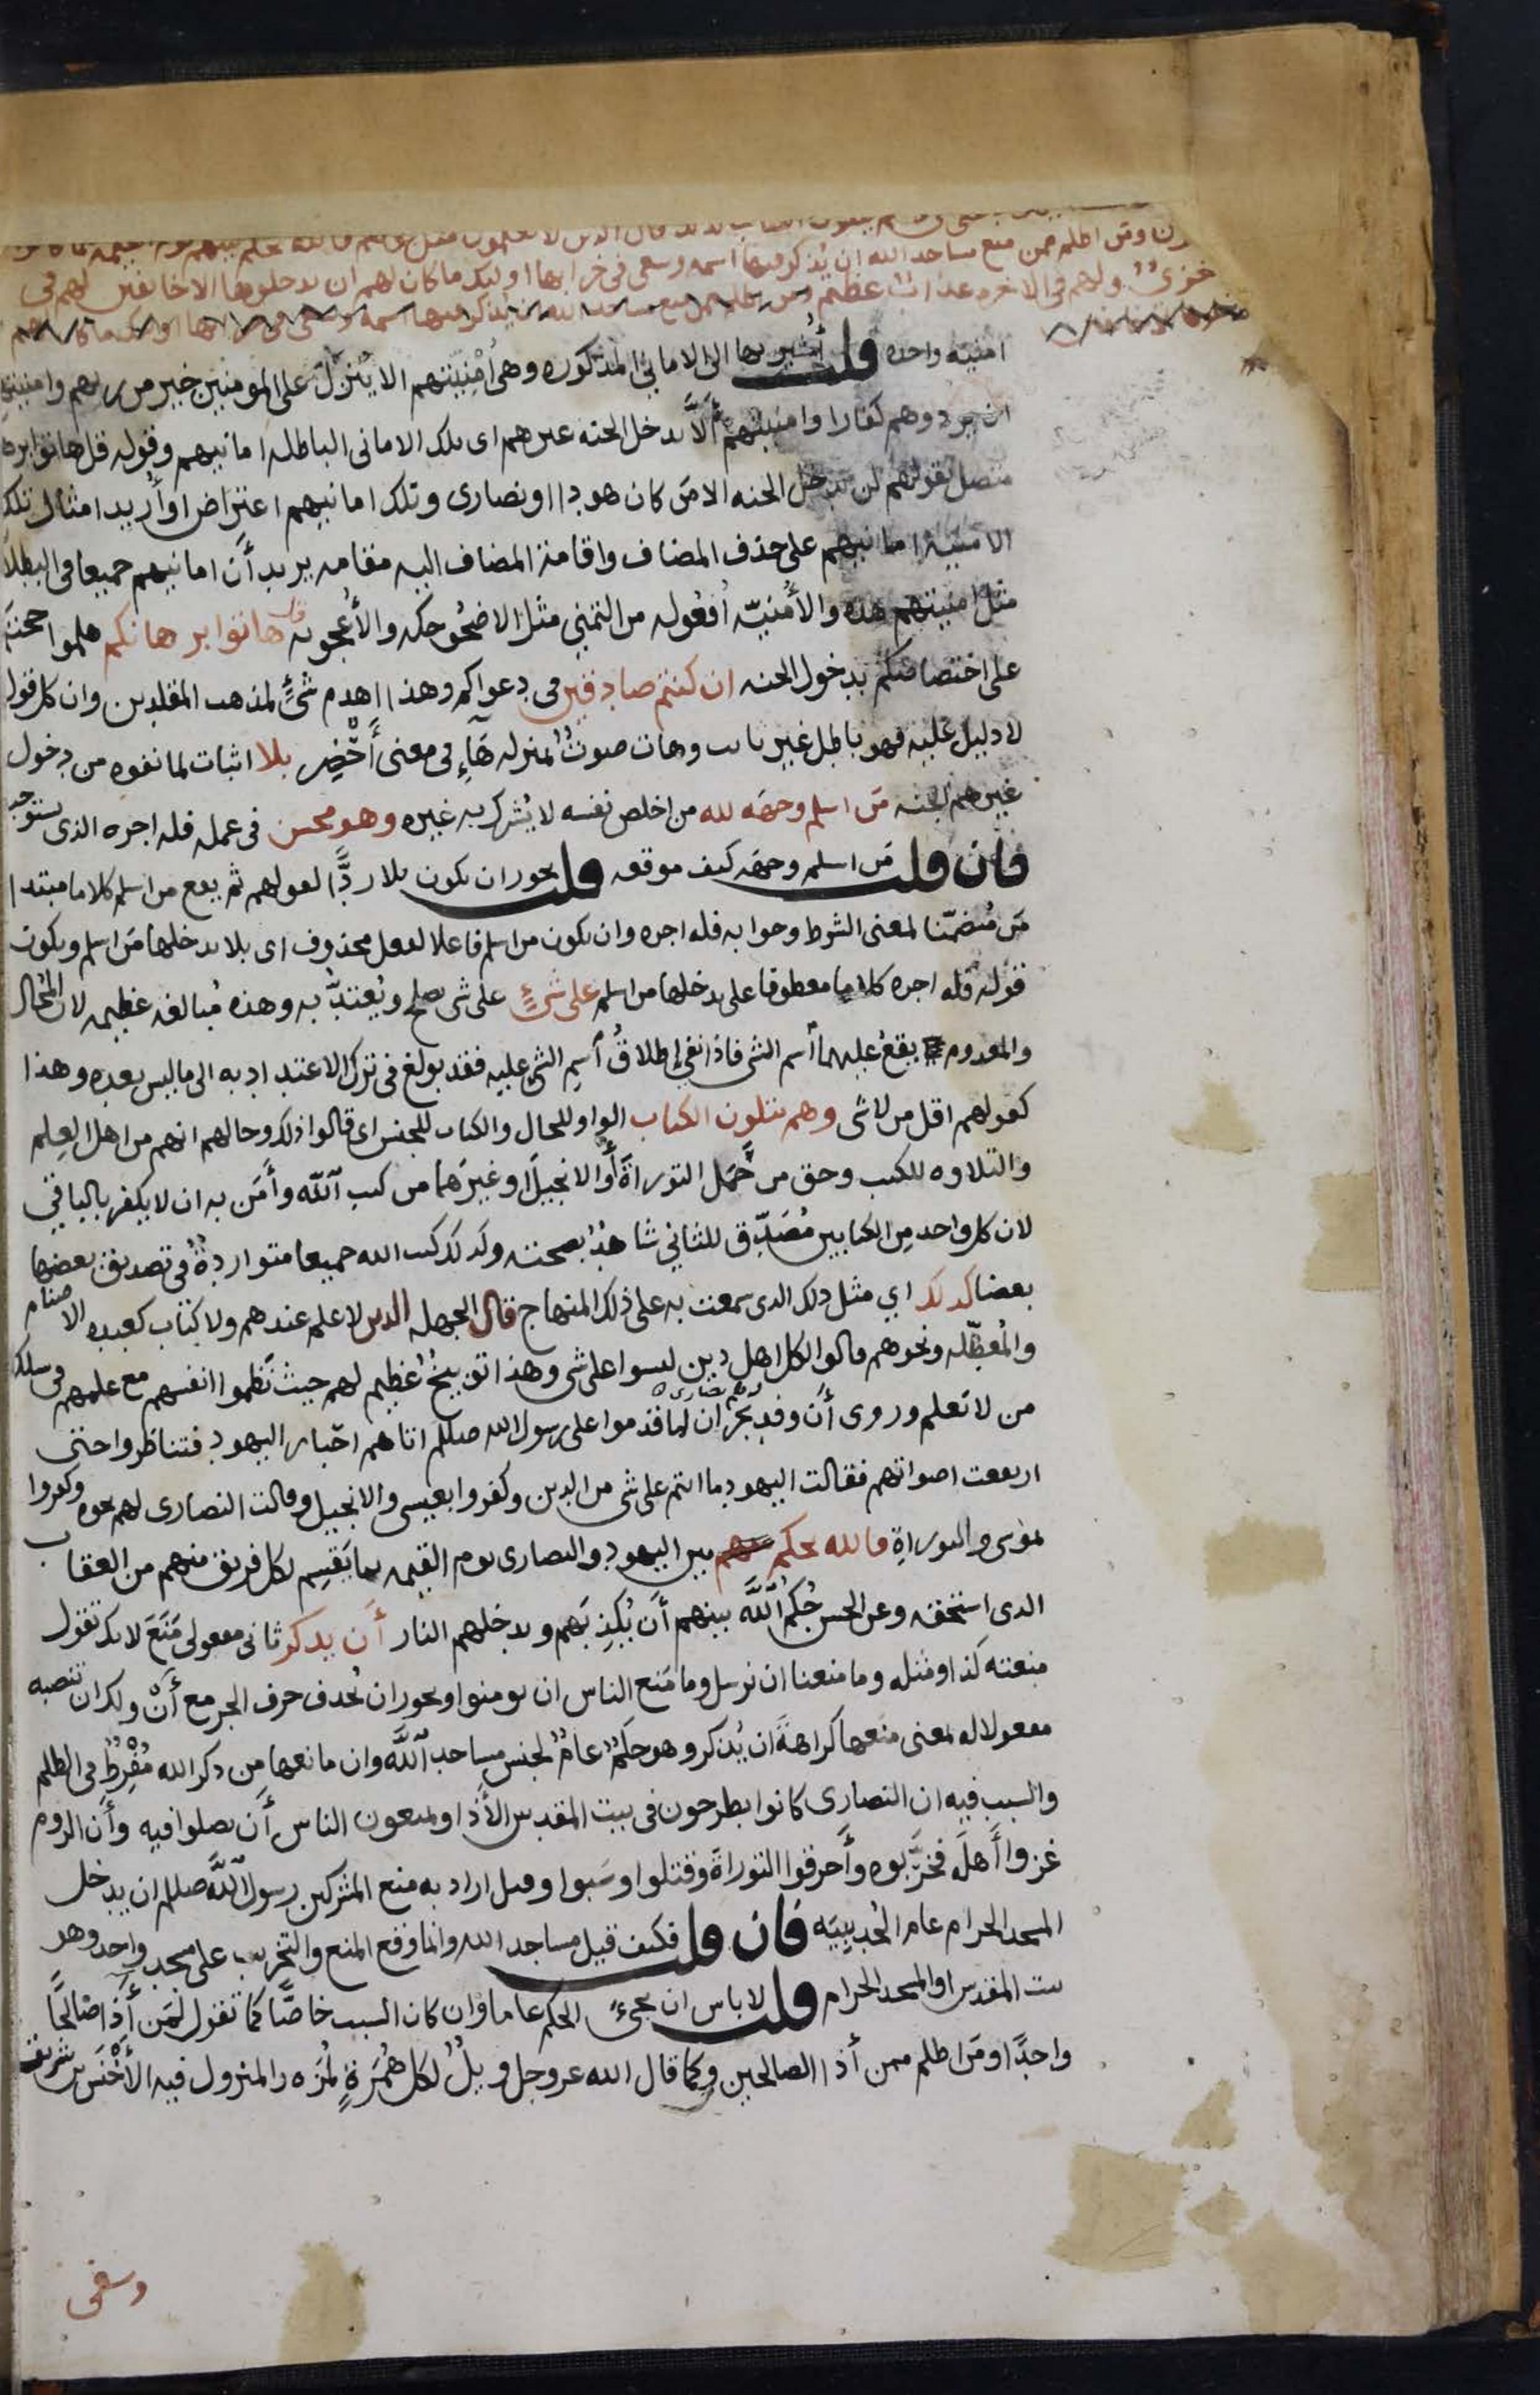 قال الذين لا يعلمون مثل قولهم فالله يحكم بينهم يوم القيمه
ومن اظلم ممن منع مساجد الله ان يذكر فيها اسمه وسعى في خرابها اوليك ما كان لهم ان يدخلوها الا خايفين لهم في
خزيٌ ولهم في الاخره عذاب عظيم ومن اظلم ممن منع مساجد الله ان يذكر فيها اسمه وسعى في خرابها اوليك ما كان لهم
امنيه واحده قلت أُشير بها الى الاماني المذكوره وهي أُمْنِيَتهم الا يُنزل على المومنين خير من ربهم وامنيتهم
ان يردوهم كفارا وامنيتهم ألَّا يدخل الجنه غيرهم اى تلك الامانى الباطله امانيهم وقوله قل هاتوا برها
متصل بقولهم لن يدخل الجنه الا من كان هودا او نصارى وتلك امانيهم اعتراض او أُريد امثال تلك
الامنيه امانيهم على حذف المضاف واقامة المضاف اليه مقامه يريد أن امانيهم جميعا في البطلا
مثل امنيتهم هذه والأُمنيّه أُفعُوله من التمني مثل الاضحُوكه والأُعجوبه قل هاتوا برهانكم هلموا حجتكم
على اختصاصكم بدخول الجنه ان كنتم صادقين في دعواكم وهذا اهدم شئٍ لمذهب المقلدين وان كل قول
لا دليل عليه فهو باطل غير ثابت وهات صوتٌ بمنزله هَآءِ في معنى أَحْضِر بلا اثبات لما نفوه من دخول
غيرهم الجنه مَن اسلم وجهَه لله من اخلص نفسه لا يُشرك به غيره وهو محسن في عمله فله اجره الذى يستوجبه
فان قلت مَن اسلم وجهه كيف موقعه قلت يجوز ان يكون بلا ردًّا لقولهم ثم يقع من اسلم كلاما مبتدا
مَن مُتضمّنا لمعنى الشرط وجوابه فله اجره وان يكون من اسلم فاعلا لفعل محذوف اى بلا يدخلها مَن اسلم ويكون
قوله فله اجره كلاما معطوفا على يدخلها من اسلم على شئٍ على شى يصلح ويُعتدُّ به وهذه مُبالغه عظيمه لان المُحال
والمعدوم يقع عليهما اسم الشى فاذا نفي إطلاقُ أسم الشى عليه فقد بولغ في ترك الاعتداد به الى ما ليس بعده وهذا
كقولهم اقل من لا شى وهم يتلون الكتاب الواو للحال والكتاب للجنس اى قالوا ذلك وحالهم انهم من اهل العِلم
والتلاوه للكتب وحق من حَمَل التوراةَ أو الانجيل او غيرَهما من كتب اللّه وأمَن به ان لا يكفر بالباقي
لان كل واحد مِن الكتابين مُصَدِّق للثاني شاهدٌ بصحته وكذلك كتب الله جميعا متواردةٌ في تصديق بعضها
بعضا كذلك اي مثل ذلك الذى سمعت به على ذلك المنهاج قال الجهله الذين لا علم عندهم ولا كتاب كعبده الاصنام
والمُعطّله ونحوهم قالوا لكل اهل دين ليسوا على شى وهذا توبيخٌ عظيم لهم حيث نَظموا انفسهم مع علمهم في سلك
من لا يَعلم وروى أَن وفد نجران لما قدموا على رسول الله صللم اتاهم احّبار اليهود فتناظروا حتى
ارتفعت اصواتهم فقالت اليهود ما انتم على شى من الدين وكفروا بعيسى والانجيل وقالت النصارى لهم نحوه وكفروا
بموسى والتوراةِ فالله يحكم بين اليهود والنصارى يوم القيمه بما يَقسِم لكل فريق منهم من العقاب
الذى استحقه وعن الحسن حُكمُ اللَّه بينهم أَن يُكذِبَهم ويدخلهم النار أَن يذكر ثاني مفعولي مَنَعَ لانك تقول
منعته كذا ومثله وما منعنا ان نرسل وما مَنع الناس ان يومنوا ويجوز ان يُحذف حرف الجر مع أَنْ ولك ان تنصبه
مفعولا له بمعنى منعها كراهةَ ان يُذكر وهو حكمٌ عامٌ لجنس مساجد اللَّه وان مانعها مِن ذكر الله مُفْرِطٌ في الظلم
والسبب فيه ان النصارى كانوا يطرحون في بيت المقدس الأَذا ويمنعون الناس أَن يصلوا فيه وأَن الروم
غزوا أَهلَه فخرّبوه وأَحرقوا التوراةَ وقتلوا وسَبوا وقيل اراد به منع المشركين رسول اللَّه صللم ان يدخل
المسجد الحرام عام الحُديبِيَه فان قلت فكيف قيل مساجد الله وانما وقع المنع والتخريب على مسجد واحد وهو
بيت المقدس او المسجد الحرام قلت لا باس ان يجىءَ الحكم عاما وان كان السبب خاصًّا كما تقول لِمَن أَذا صَالحًا
واحدًا ومَن اظلم ممن أذا الصالحين وكما قال الله عز وجل ويلٌ لكل هُمَزةٍ لُمزه والمنزول فيه الأَخْنَس بن شريق
وسعى